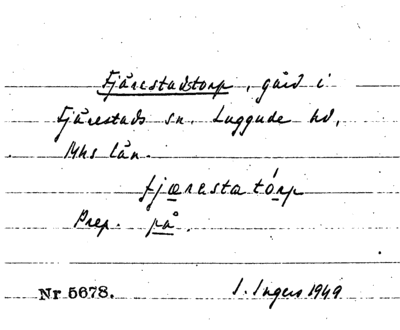 Fjärestadstorp, gård i
Fjärestads sn. Luggude hd,
Mhs län.
fjærestatórp
Prep. på.
Nr 5678. I. Ingers 1949